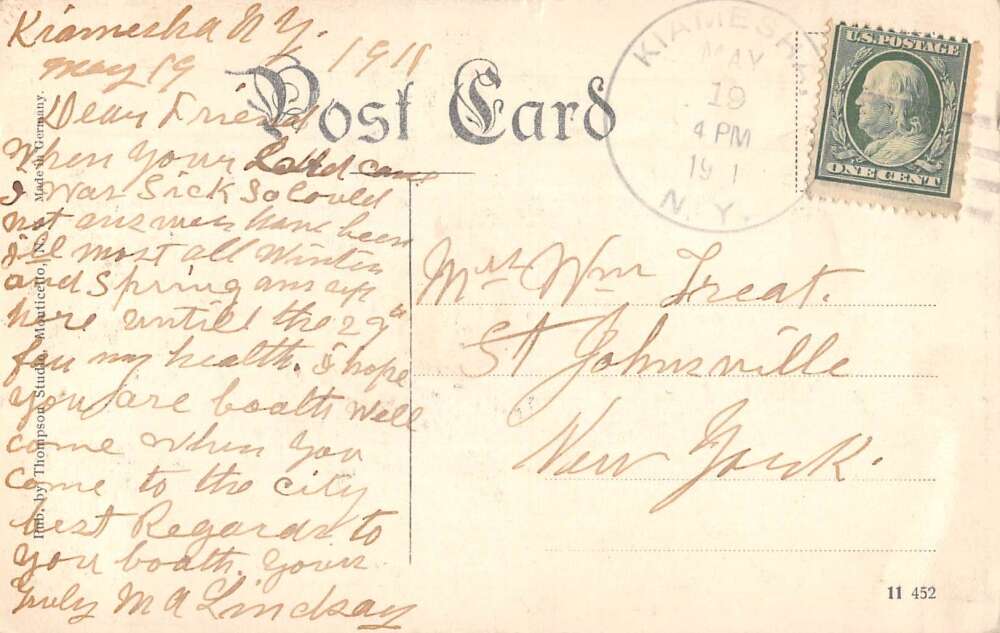 Kiamesha N Y.
May 19 1911
Dear Friend
When your Letter came
I was Sick So Could
not answer have been
ill most all Winter
and Spring am
here untill the 29th
for my health. I hope
you are boath well
come when you
come to the city
best Regards to
you boath. Your
Truly M A Lindsay
Post Card
KIAMESHA
MAY
19
4 PM
191
N. Y.
U.S. POSTAGE
ONE CENT
Mrs Wm Treat.
St Johnsville
New York.
Pub. by Thompson Studio, Monticello, N. Y. Made in Germany.
11 452